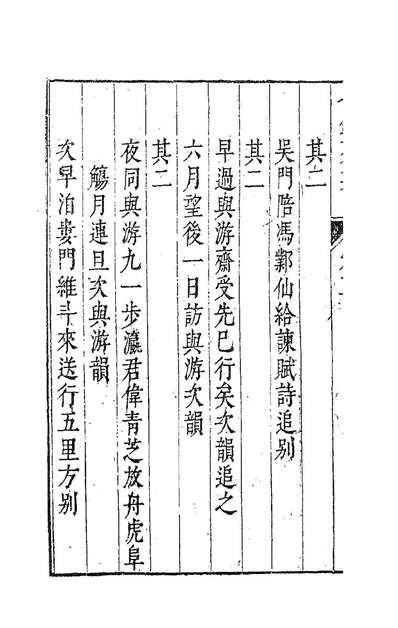 其二
吳門陪馮鄴仙給諫賦詩追別
其二
早過與游齋受先已行矣次韻追之
六月望後一日訪與游次韻
其二
夜同與游九一步瀛君偉青芝放舟虎阜
觴月連旦次與游韻
次早泊婁門維斗來送行五里方別